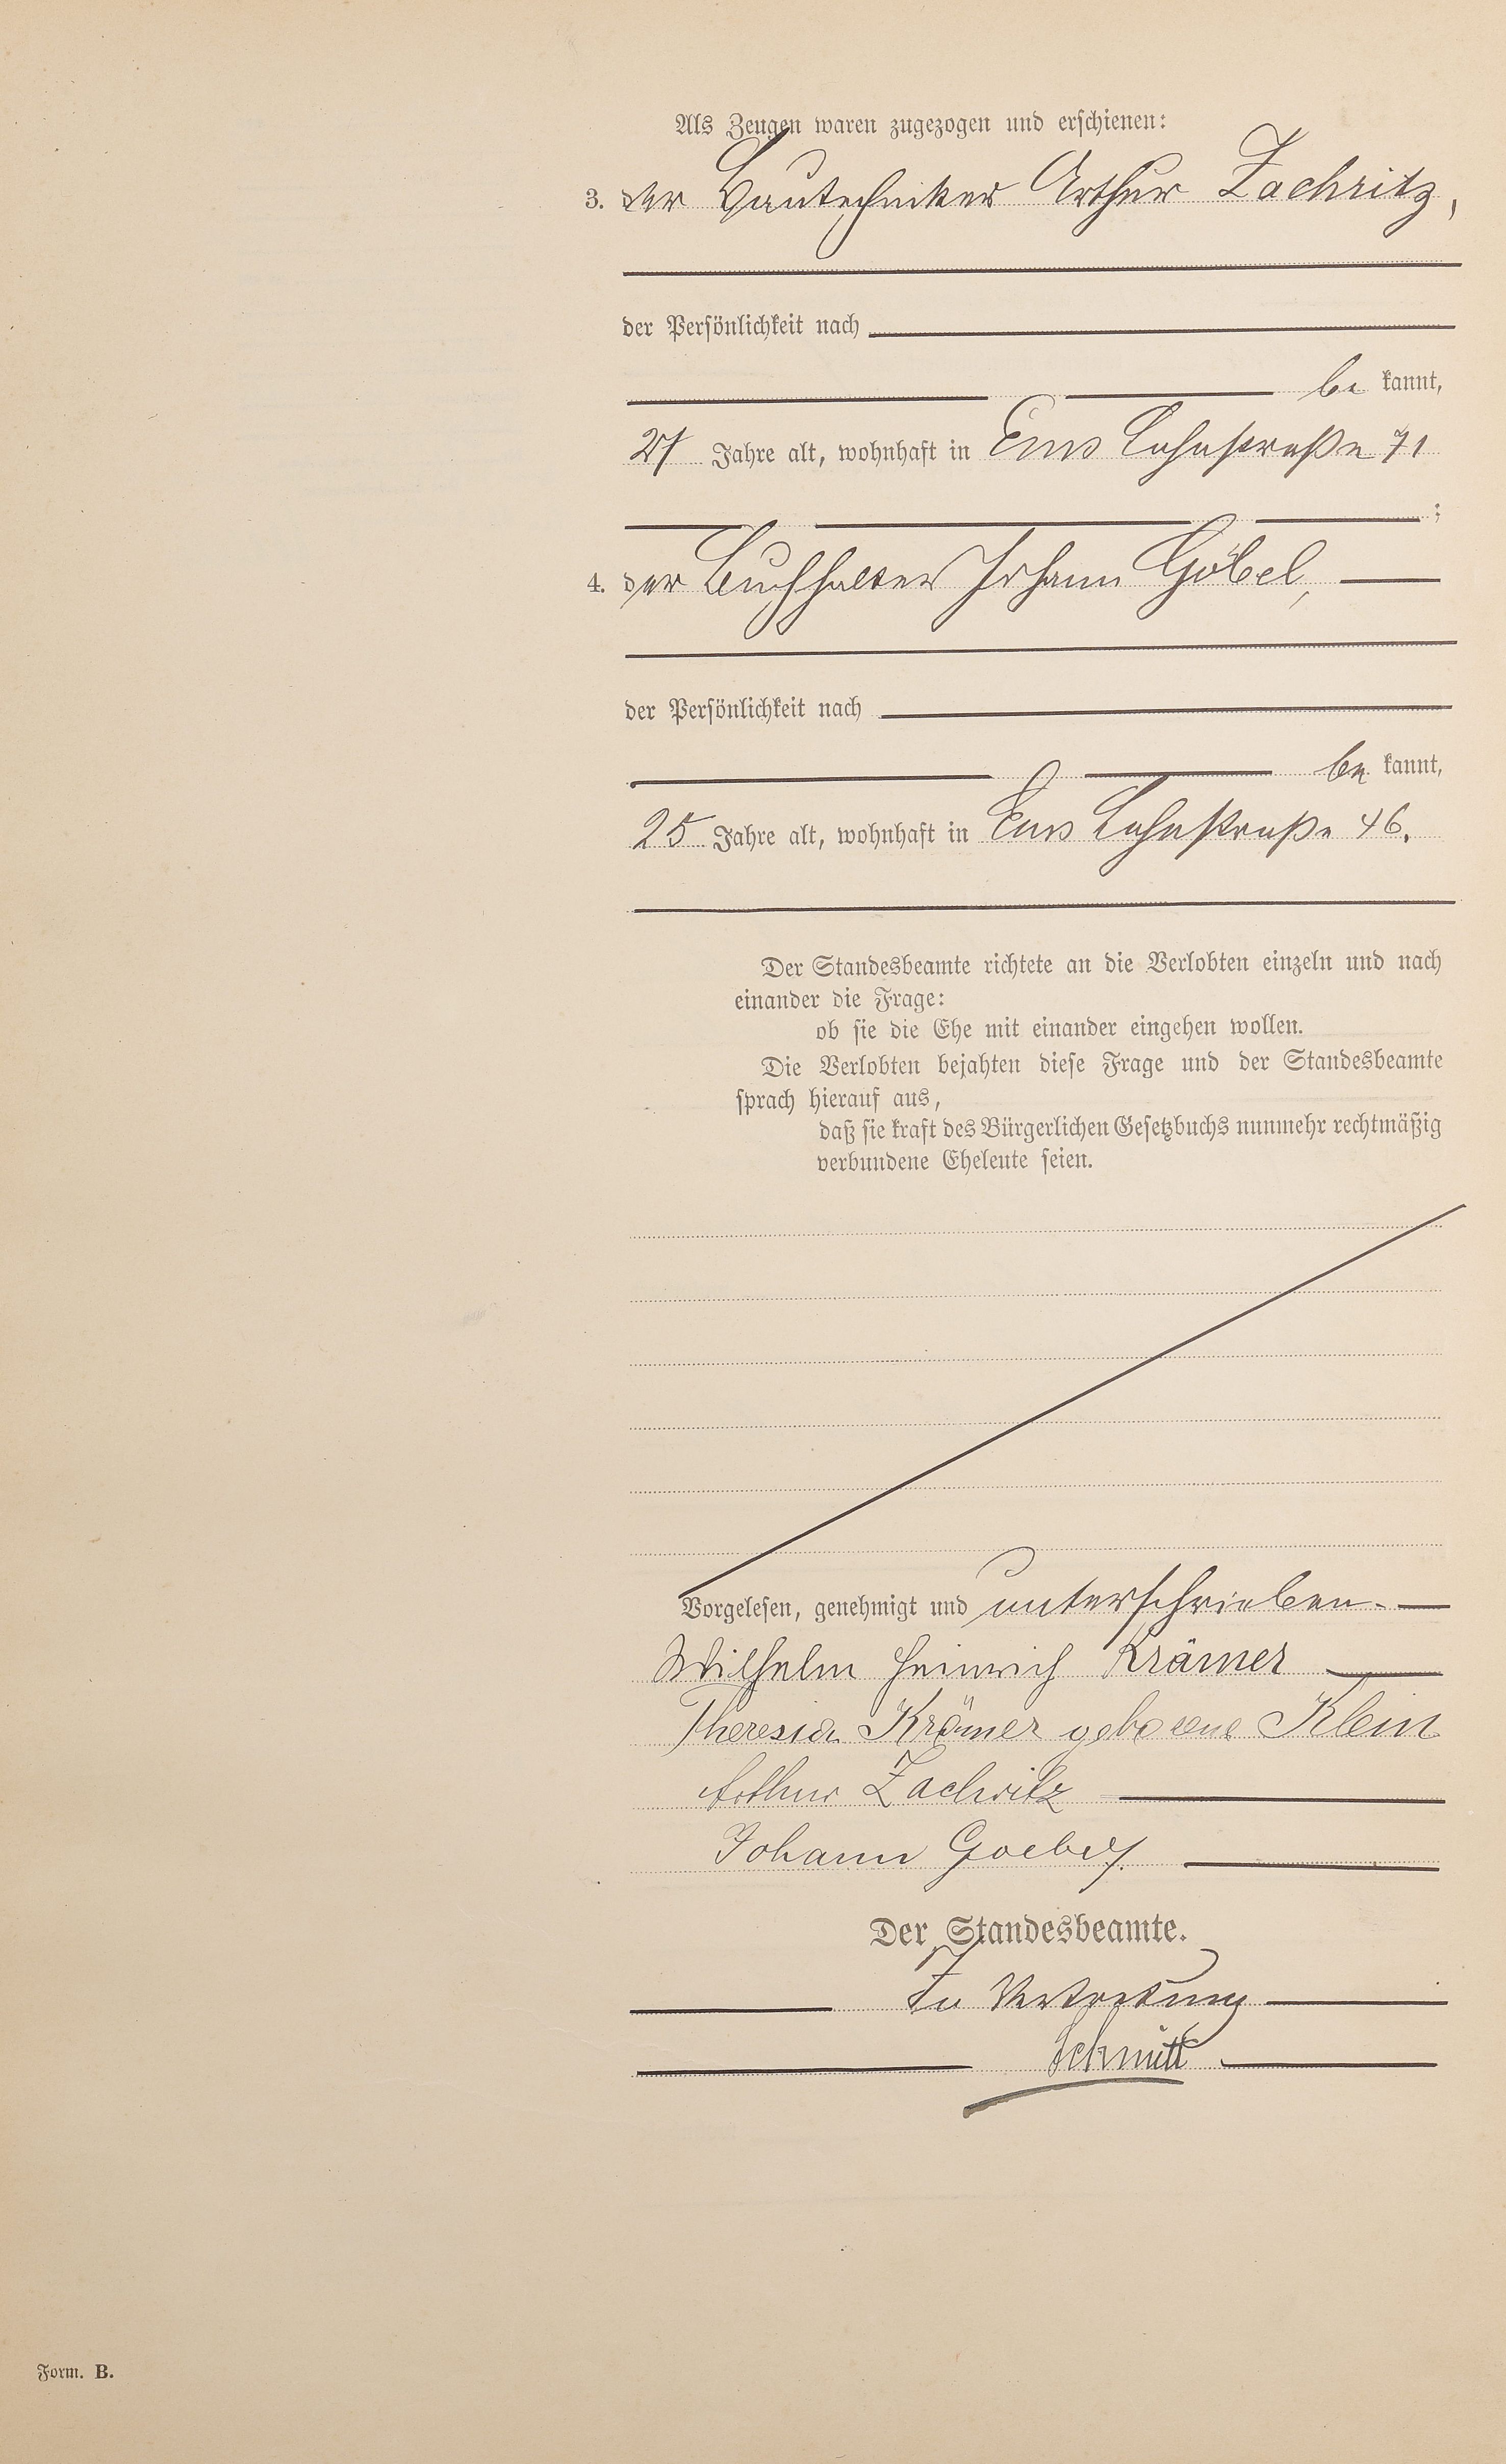 Als Zeugen waren zugezogen und erschienen:
3. der Bautechniker Arthur Zachritz,
der Persönlichkeit nach
be kannt,
27 Jahre alt, wohnhaft in Ems Lahnstraße 71
;
4. der Buchhalter Johann Göbel,
der Persönlichkeit nach
be kannt,
25 Jahre alt, wohnhaft in Ems Lahnstraße 46.
Der Standesbeamte richtete an die Verlobten einzeln und nach
einander die Frage:
ob sie die Ehe mit einander eingehen wollen.
Die Verlobten bejahten diese Frage und der Standesbeamte
sprach hierauf aus,
daß sie kraft des Bürgerlichen Gesetzbuchs nunmehr rechtmäßig
verbundene Eheleute seien.
Vorgelesen, genehmigt und unterschrieben.
Wilhelm Heinrich Krämer
Theresia Krämer geborene Klein
Arthur Zachritz
Johann Goebel.
Der Standesbeamte.
In Vertretung
Schmitt
Form. B.